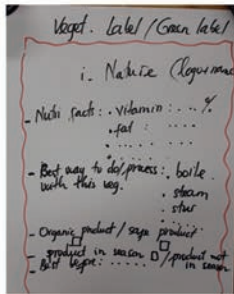 Veget. Label / Green label
i. Nature (logo + name
- Nutri facts : . vitamin : . . . %
. fat : . . . .
. . . . . . .
. . . . . . .
- Best way to do/process : . boile
with this veg.
. steam
. stur
. . . . . . .
- Organic product / safe product
- product in season / product not
in season
- Best before : . . . . . .